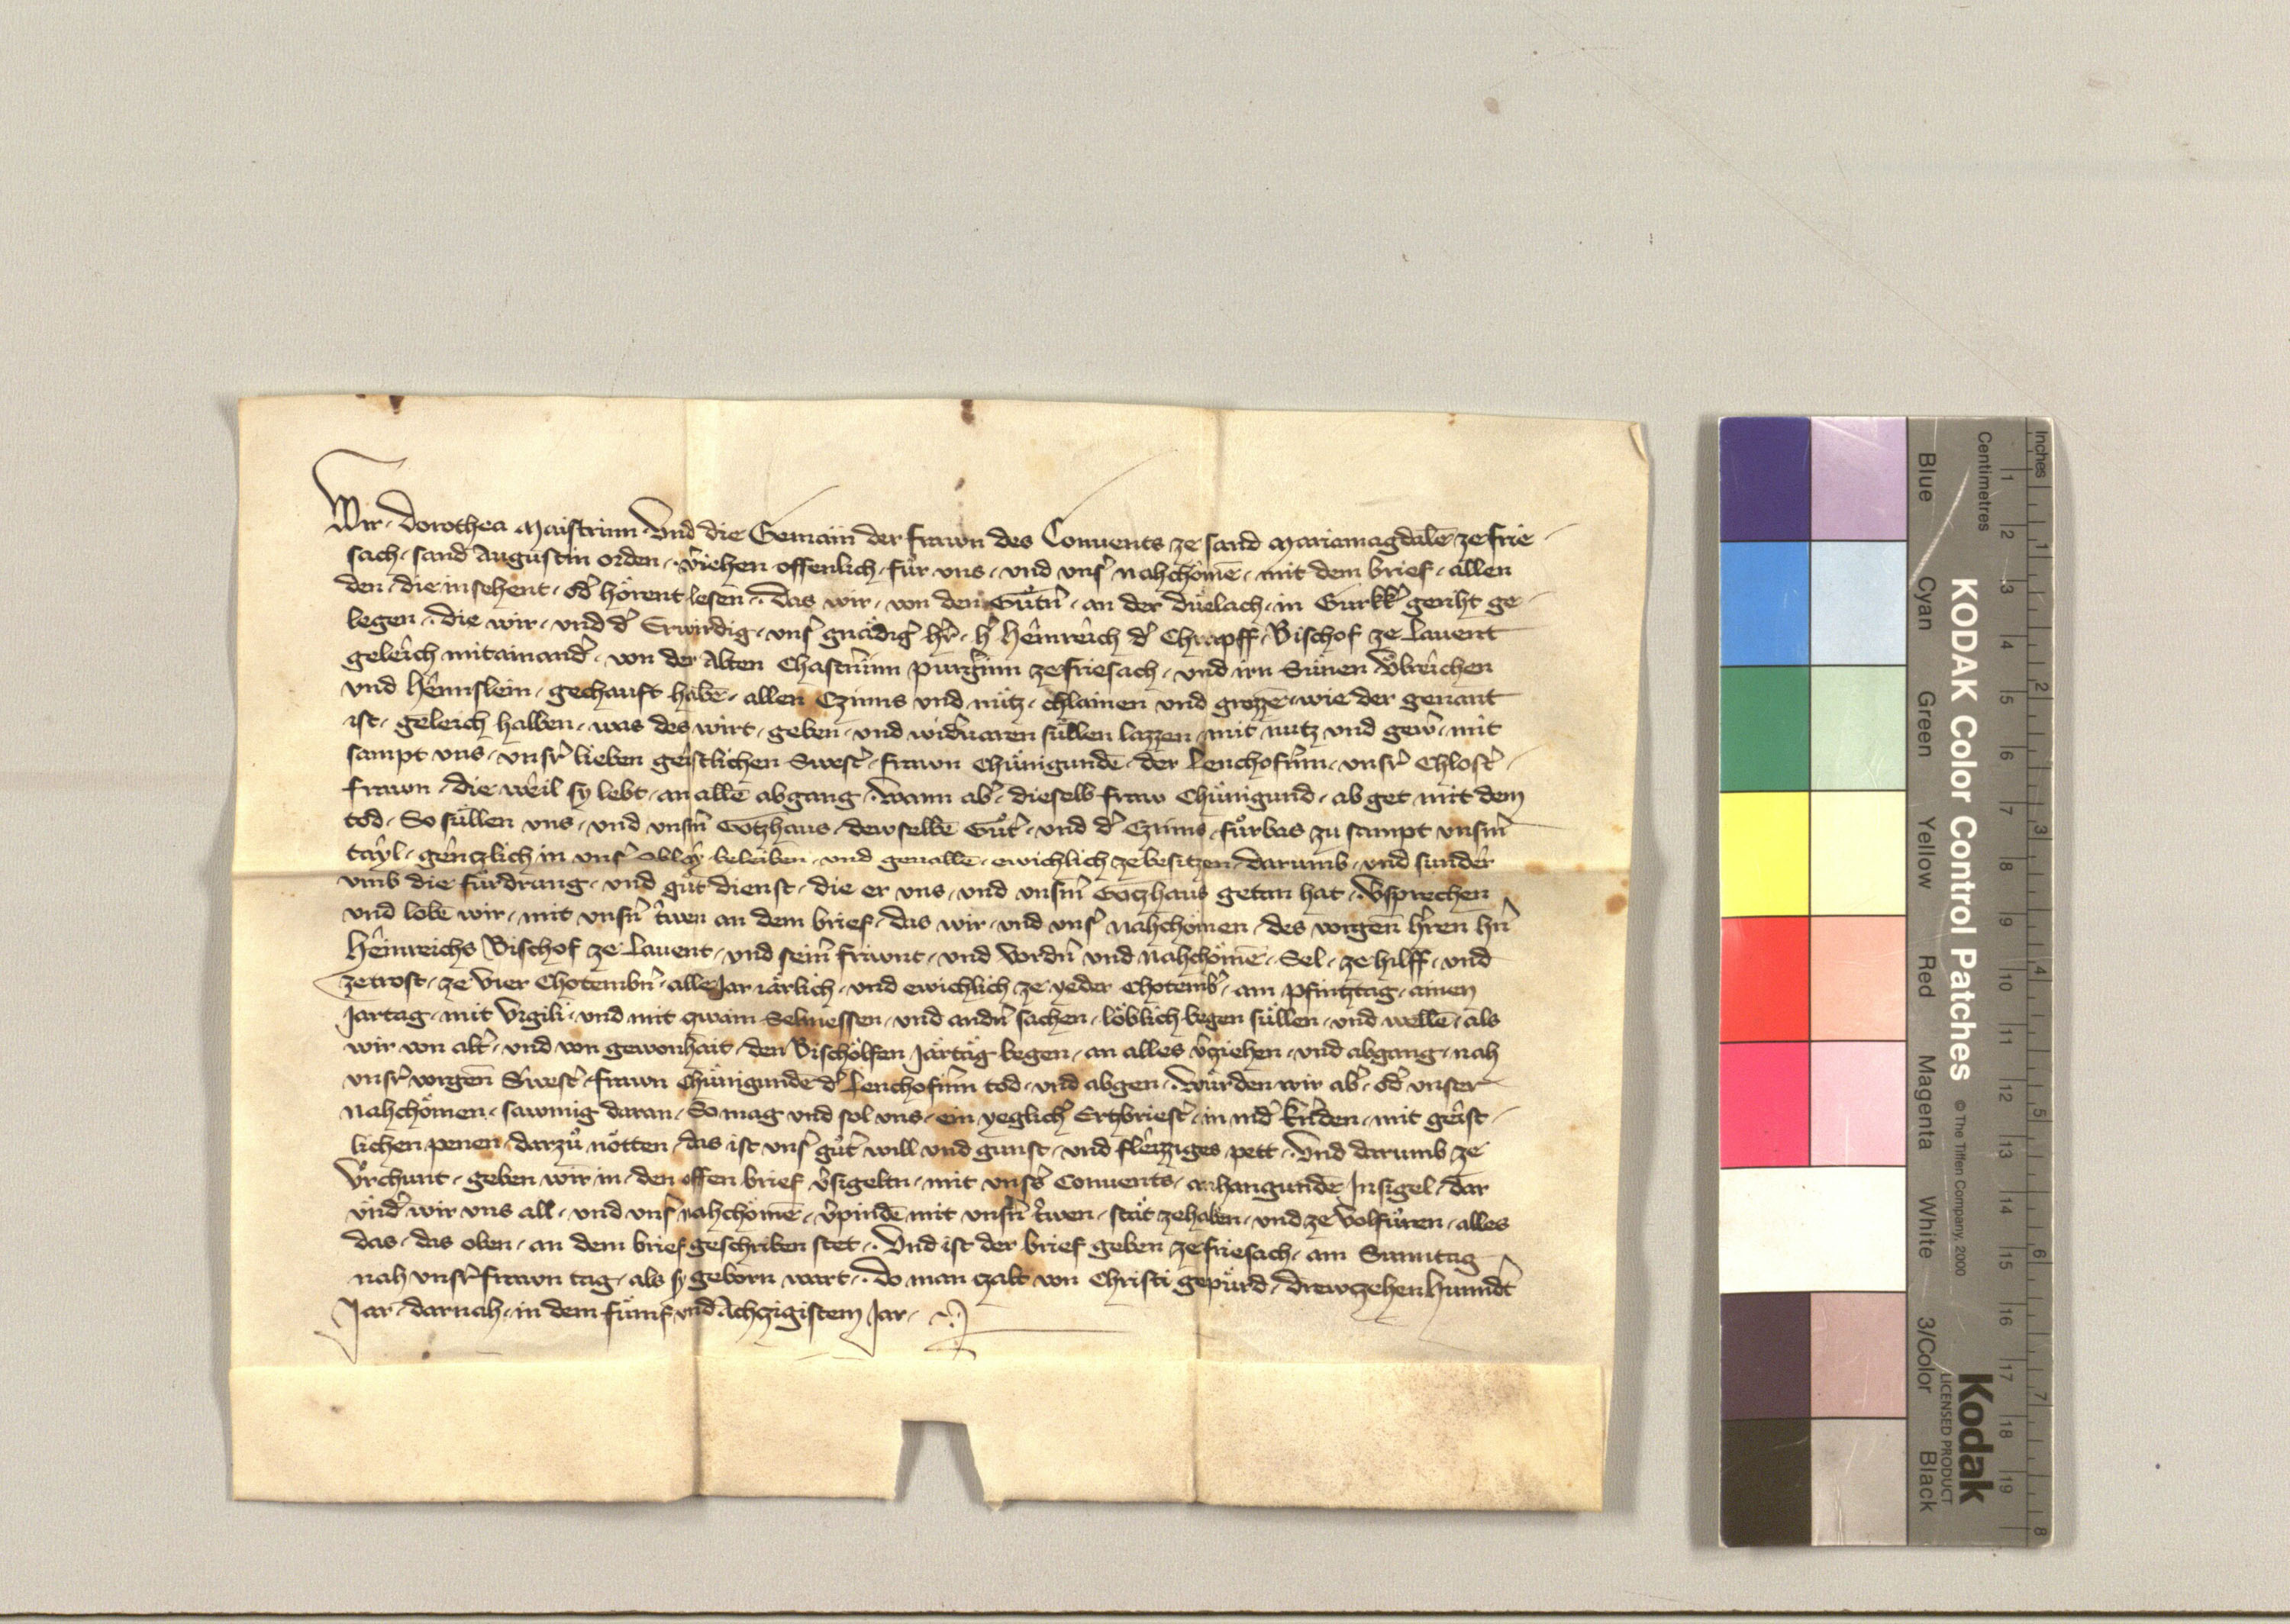 Wir Dorothea Maistrinn Und die Gemain der frawn des Conuents ze sand Mariamagdalē ze frie
sach sand Augustin orden v̂iehen offenlich für vns vnd vnſ̂ nahchömē mit dem brief allen
den die in sehent od̂ hörent lesen Das wir von den Gůtn̂ an der důelach in Gurkk̂ geriht ge
legen die wir vnd d̂ Erwirdig vnſ̂ gnädiĝ hr̂ ĥ Heinreich d̂ Chrapff Bischof ze Lauent
geleich mitainand̂ von der Alten Chastn̂inn purg̑inn ze friesach vnd irn Sünen Vͦlreichen
vnd Hennslein gechauft habē allen Czinns vnd nütz chlainen vnd grozē wie der genant
ist geleich halben was des wirt geben vnd wid̂uaren süllen lazzen mit nutz vnd gew̑ mit
sampt vns vnsr̂ lieben geistlichen Swest̂ frawn Chünigundē der Lenchofr̂inn vnsr̂ Chlost̂
frawn die weil sy lebt an allē abgang wann ab̂ dieselb fraw Chünigund ab get mit dem
tod So süllen vns vnd vnsm̂ Gotzhaus dewselbē Gůt̂ vnd d̂ Czinns fürbas zu sampt vnsm̂
tayl genczlich in vnſ̂ Oblay beleiben vnd geuallē ewichlich ze besitzen Darumb vnd sunder
vmb die fürdrung vnd gůt dienst die er vns vnd vnsm̂ Gotzhaus getan hat v̂sprechen
vnd lobē wir mit vnsn̂ t̂wen an dem brief das wir vnd vnſ̂ nahchömen des vorgen̄ hr̂en hn̂
Heinreichs Bischof ze Lauent vnd sein̂ friwnt vnd vordn̂ vnd nahchömē Sel ze hilff vnd
ze trost ze vier Chotembn̂ alle Jar iärlich vnd ewichlich ze yeder Chotemb̂ am pfintztag ainen
Jartag mit vigili vnd mit zwain Selmessen vnd andn̂ sachen löblich begen süllen vnd wellē als
wir von alt̂ vnd von gewonhait den Bischölfen Järtäg begen an alles v̂ziehen vnd abgang nah
vnsr̂ vorgen̄ Swest̂ frawn Chünigundē d̂ Lenchofr̂inn tod vnd abgen würden wir ab̂ od̂ vnser
nahchömen sawmig daran So mag vnd sol vns ein yeglicĥ Ertzbriest̂ in nid̂ kern̂den mit geist
lichen penen darzů nötten das ist vnſ̂ gůt will vnd gunst vnd fleizziges pett Und darumb ze
Vͦrchunt geben wir in den offen brief v̂sigeltn mit vnsr̂s Conuents anhangundē Insigel dar
vnd̂ wir vns all vnd vnſ̂ nahchömē v̂pindē mit vnsn̂ t̂wen stät ze haben vnd ze volfüren alles
das das oben an dem brief geschriben stet Und ist der brief geben ze friesach am Sunntag
nah vnsr̂ frawn tag als sy geborn wart Do man czalt von Christi gepürd drewzehenhunnd̂t
Jar darnah in dem fümf vnd Achzigistem Jar
KODAK Color Control Patches
© The Tiffen Company, 2000
Kodak
LICENSED PRODUCT
Inches
Centimetres
1 2 3 4 5 6 7 8
1 2 3 4 5 6 7 8 9 10 11 12 13 14 15 16 17 18 19
Blue
Cyan
Green
Yellow
Red
Magenta
White
3/Color
Black